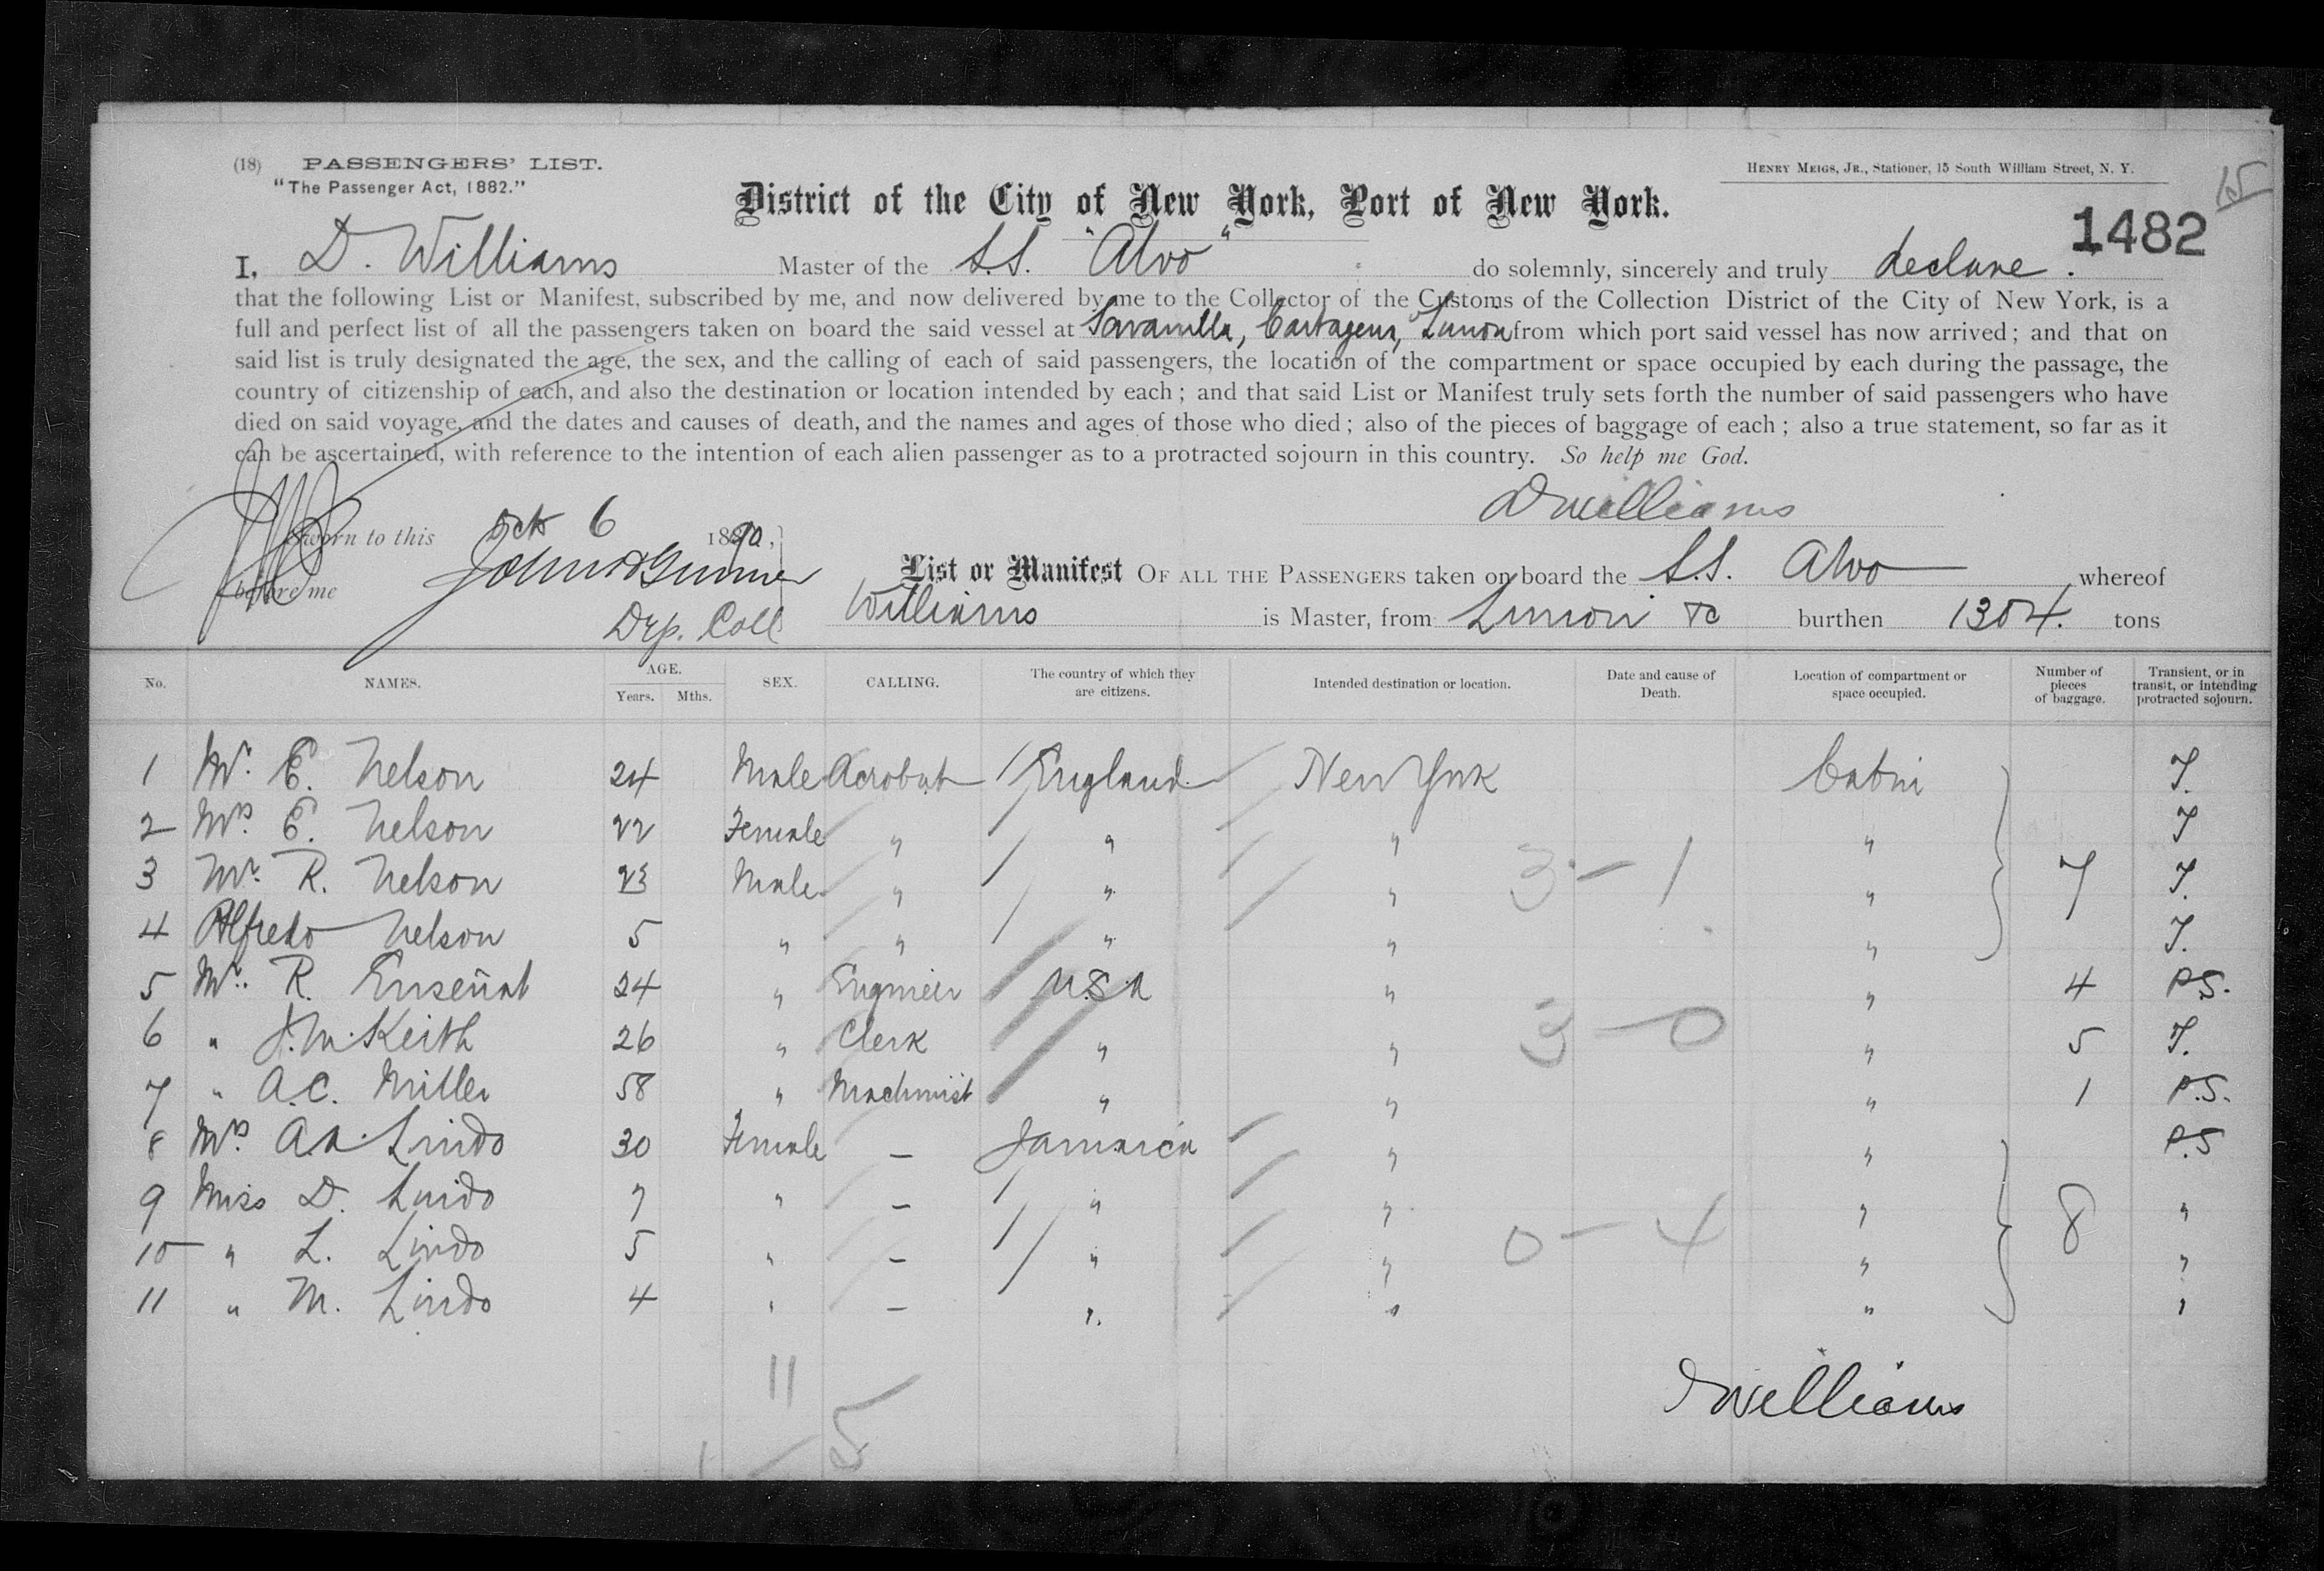 (18) PASSENGERS' LIST.
"The Passenger Act, 1882."
HENRY MEIGS, JR., Stationer, 15 South William Street, N. Y.
15
District of the City of New York, Port of New York.
1482
I, D. Williams Master of the S.S. "Alvo" do solemnly, sincerely and truly declare.
that the following List or Manifest, subscribed by me, and now delivered by me to the Collector of the Customs of the Collection District of the City of New York, is a
full and perfect list of all the passengers taken on board the said vessel at Savanilla, Cartagena, Limon from which port said vessel has now arrived; and that on
said list is truly designated the age, the sex, and the calling of each of said passengers, the location of the compartment or space occupied by each during the passage, the
country of citizenship of each, and also the destination or location intended by each; and that said List or Manifest truly sets forth the number of said passengers who have
died on said voyage, and the dates and causes of death, and the names and ages of those who died; also of the pieces of baggage of each; also a true statement, so far as it
can be ascertained, with reference to the intention of each alien passenger as to a protracted sojourn in this country. So help me God.
DWilliams
Sworn to this Oct 6 1890,
before me John
Dep. Coll
List or Manifest OF ALL THE PASSENGERS taken on board the S.S. Alvo whereof
Williams is Master, from Limon &c burthen 1304. tons
No. NAMES. AGE. Years. Mths. SEX. CALLING. The country of which they are citizens. Intended destination or location. Date and cause of Death. Location of compartment or space occupied. Number of pieces of baggage. Transient, or in transit, or intending protracted sojourn.
1 Mr. E. Nelson 24 Male Acrobat England New York Cabin T.
2 Mrs. E. Nelson 22 Female " " " " T
3 Mr. R. Nelson 23 Male " " " 3-1 " 7 T.
4 Alfredo Nelson 5 " " " " " T.
5 Mr. R. Enseñat 24 " Engineer USA " " 4 P.S.
6 " J.M. Keith 26 " Clerk " " 3-0 " 5 T.
7 " A.C. Miller 58 " Machinist " " " 1 P.S.
8 Mrs A.A. Lindo 30 Female - Jamaica " " P.S
9 Miss D. Lindo 7 " - " " " "
10 " L. Lindo 5 " - " " 0-4 " 8 "
11 " M. Lindo 4 " - " " " "
11
DWilliams
1-5